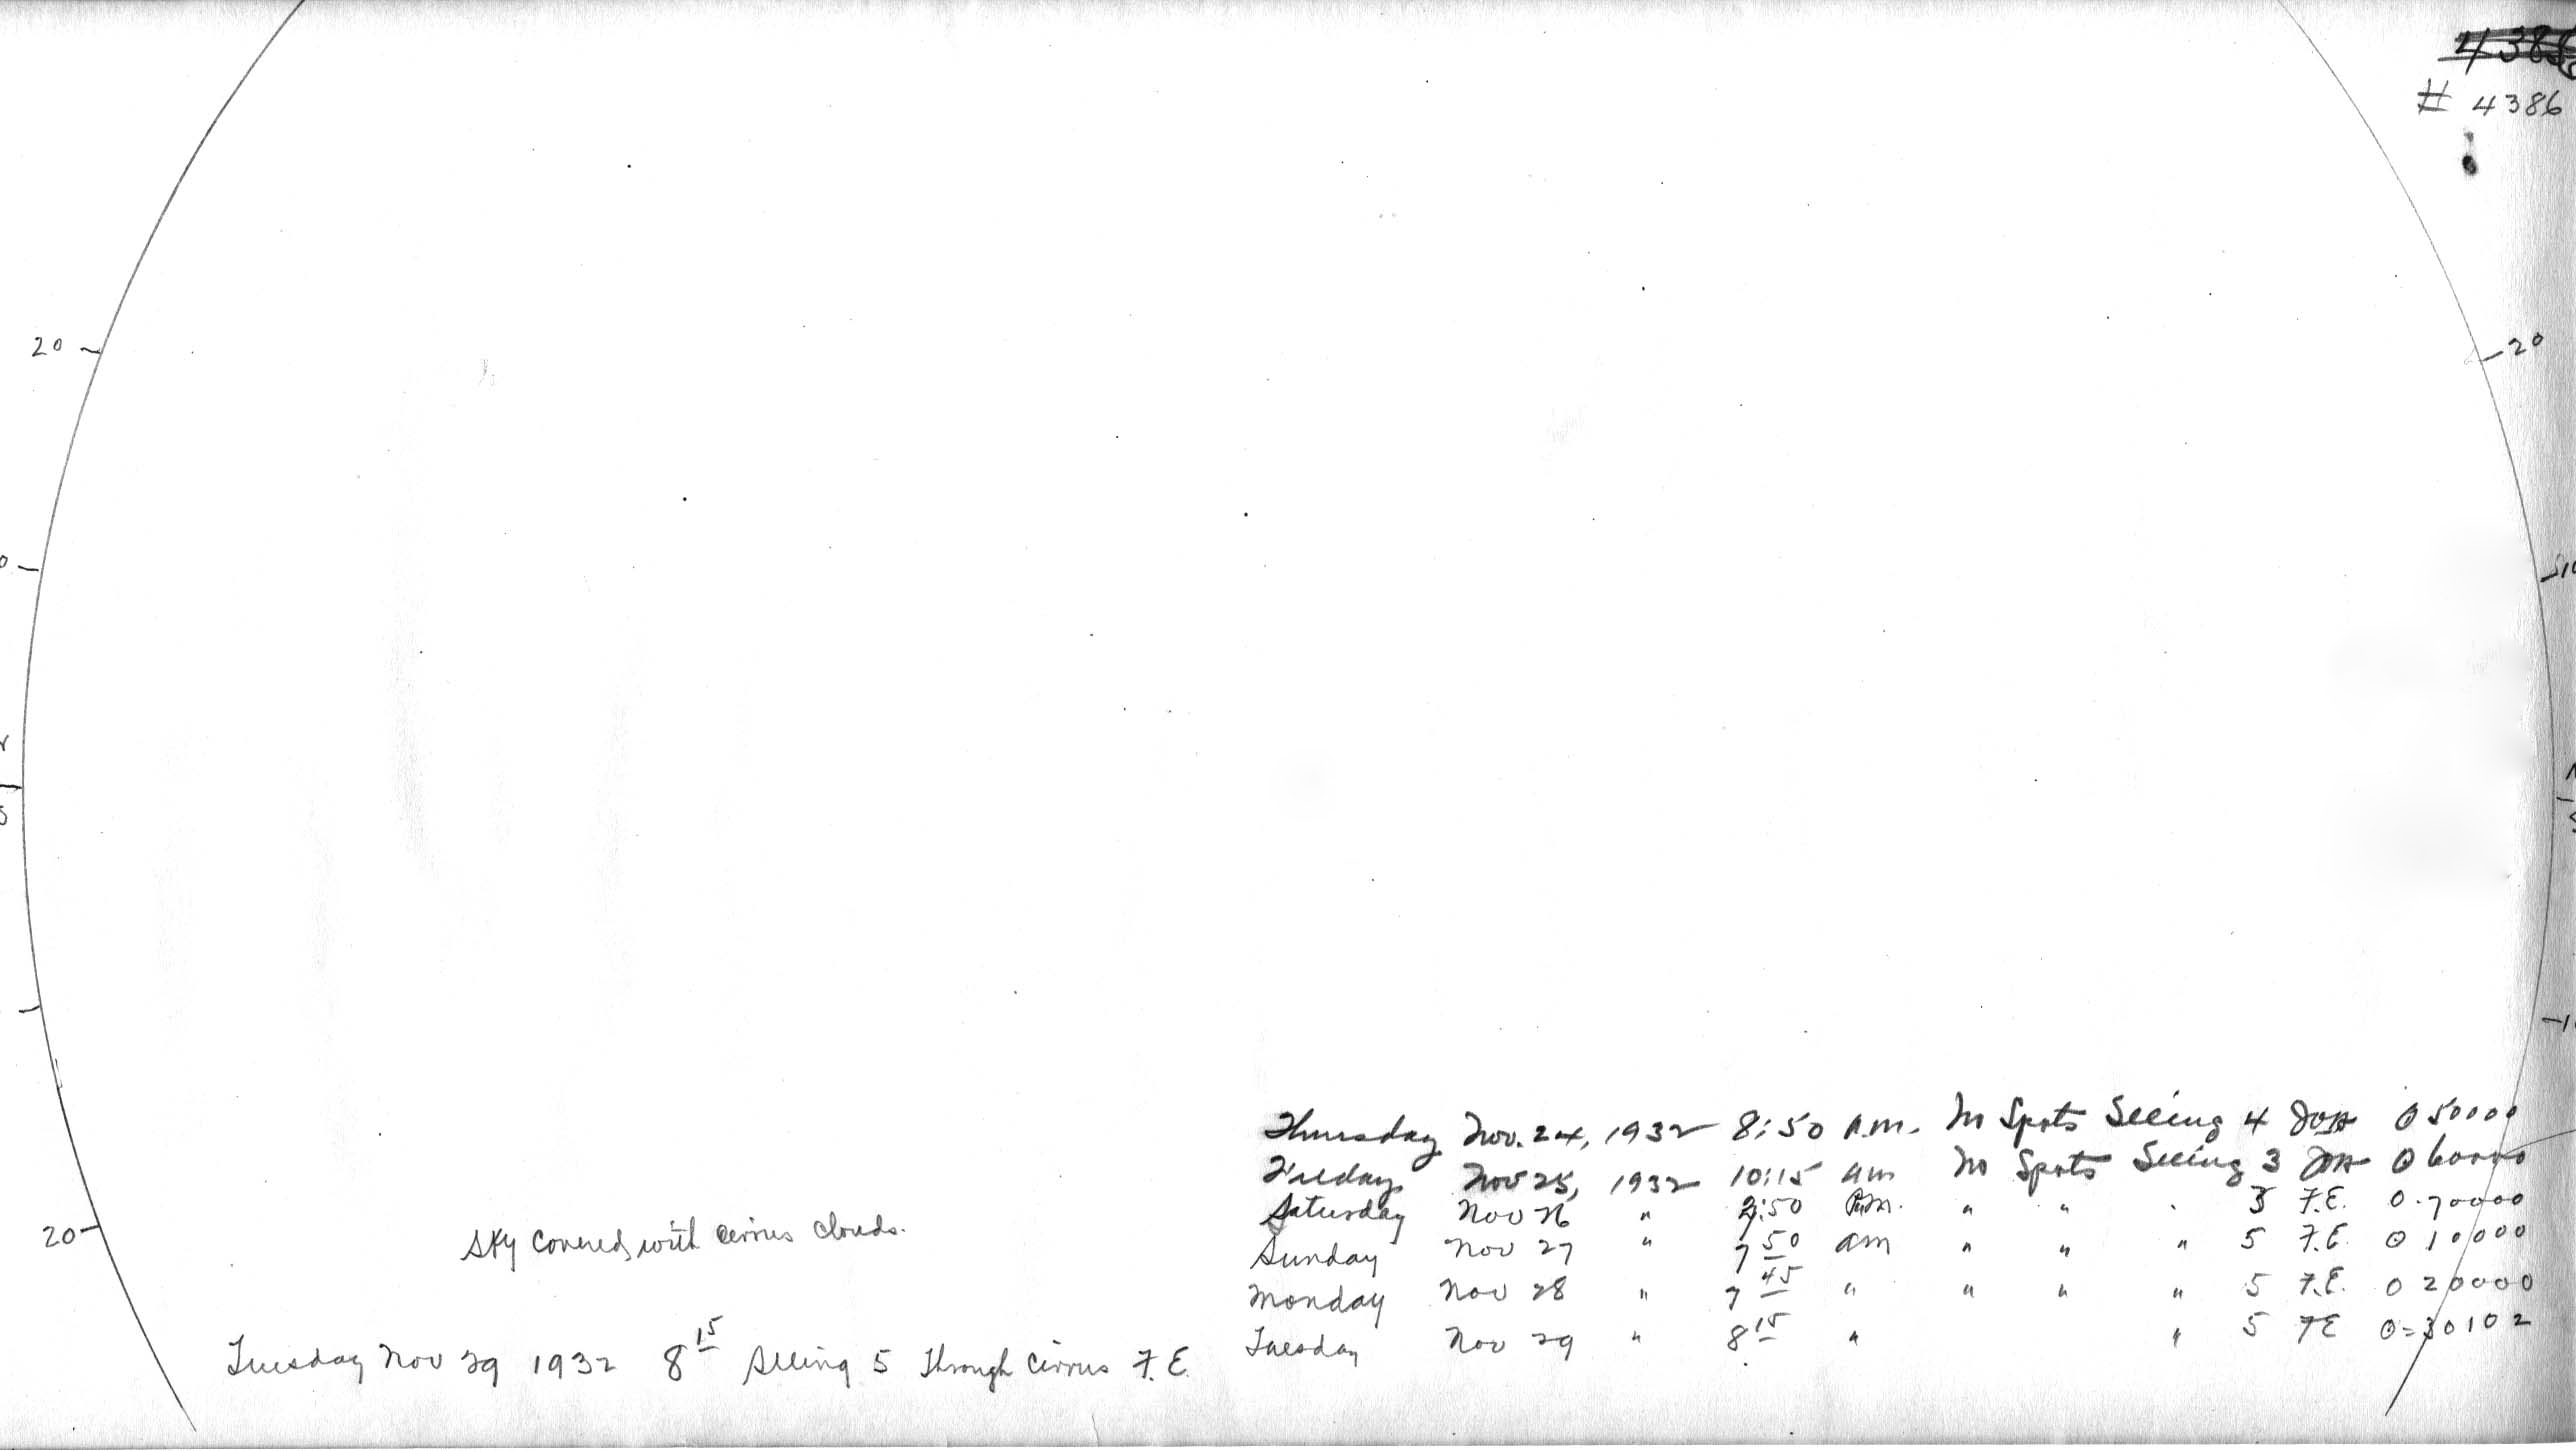 4386
# 4386
20
20
N
S
20
Thursday Nov. 24, 1932 8:50 A.M. No Spots Seeing 4 ⊙ 50000
Friday Nov 25, 1932 10:15 am No Spots Seeing 3 ⊙ 60000
Saturday Nov 26 " 2:50 P.M. " " " 3 F.E. 0.70000
Sunday Nov 27 " 7 50 am " " " 5 F.E. ⊙ 10000
Monday Nov 28 " 7 45 " " " " 5 F.E. 0 20000
Tuesday Nov 29 " 8 15 " " 5 FE 0=30102
Sky covered with cirrus clouds.
Tuesday Nov 29 1932 8 15 Seeing 5 Through cirrus F.E.